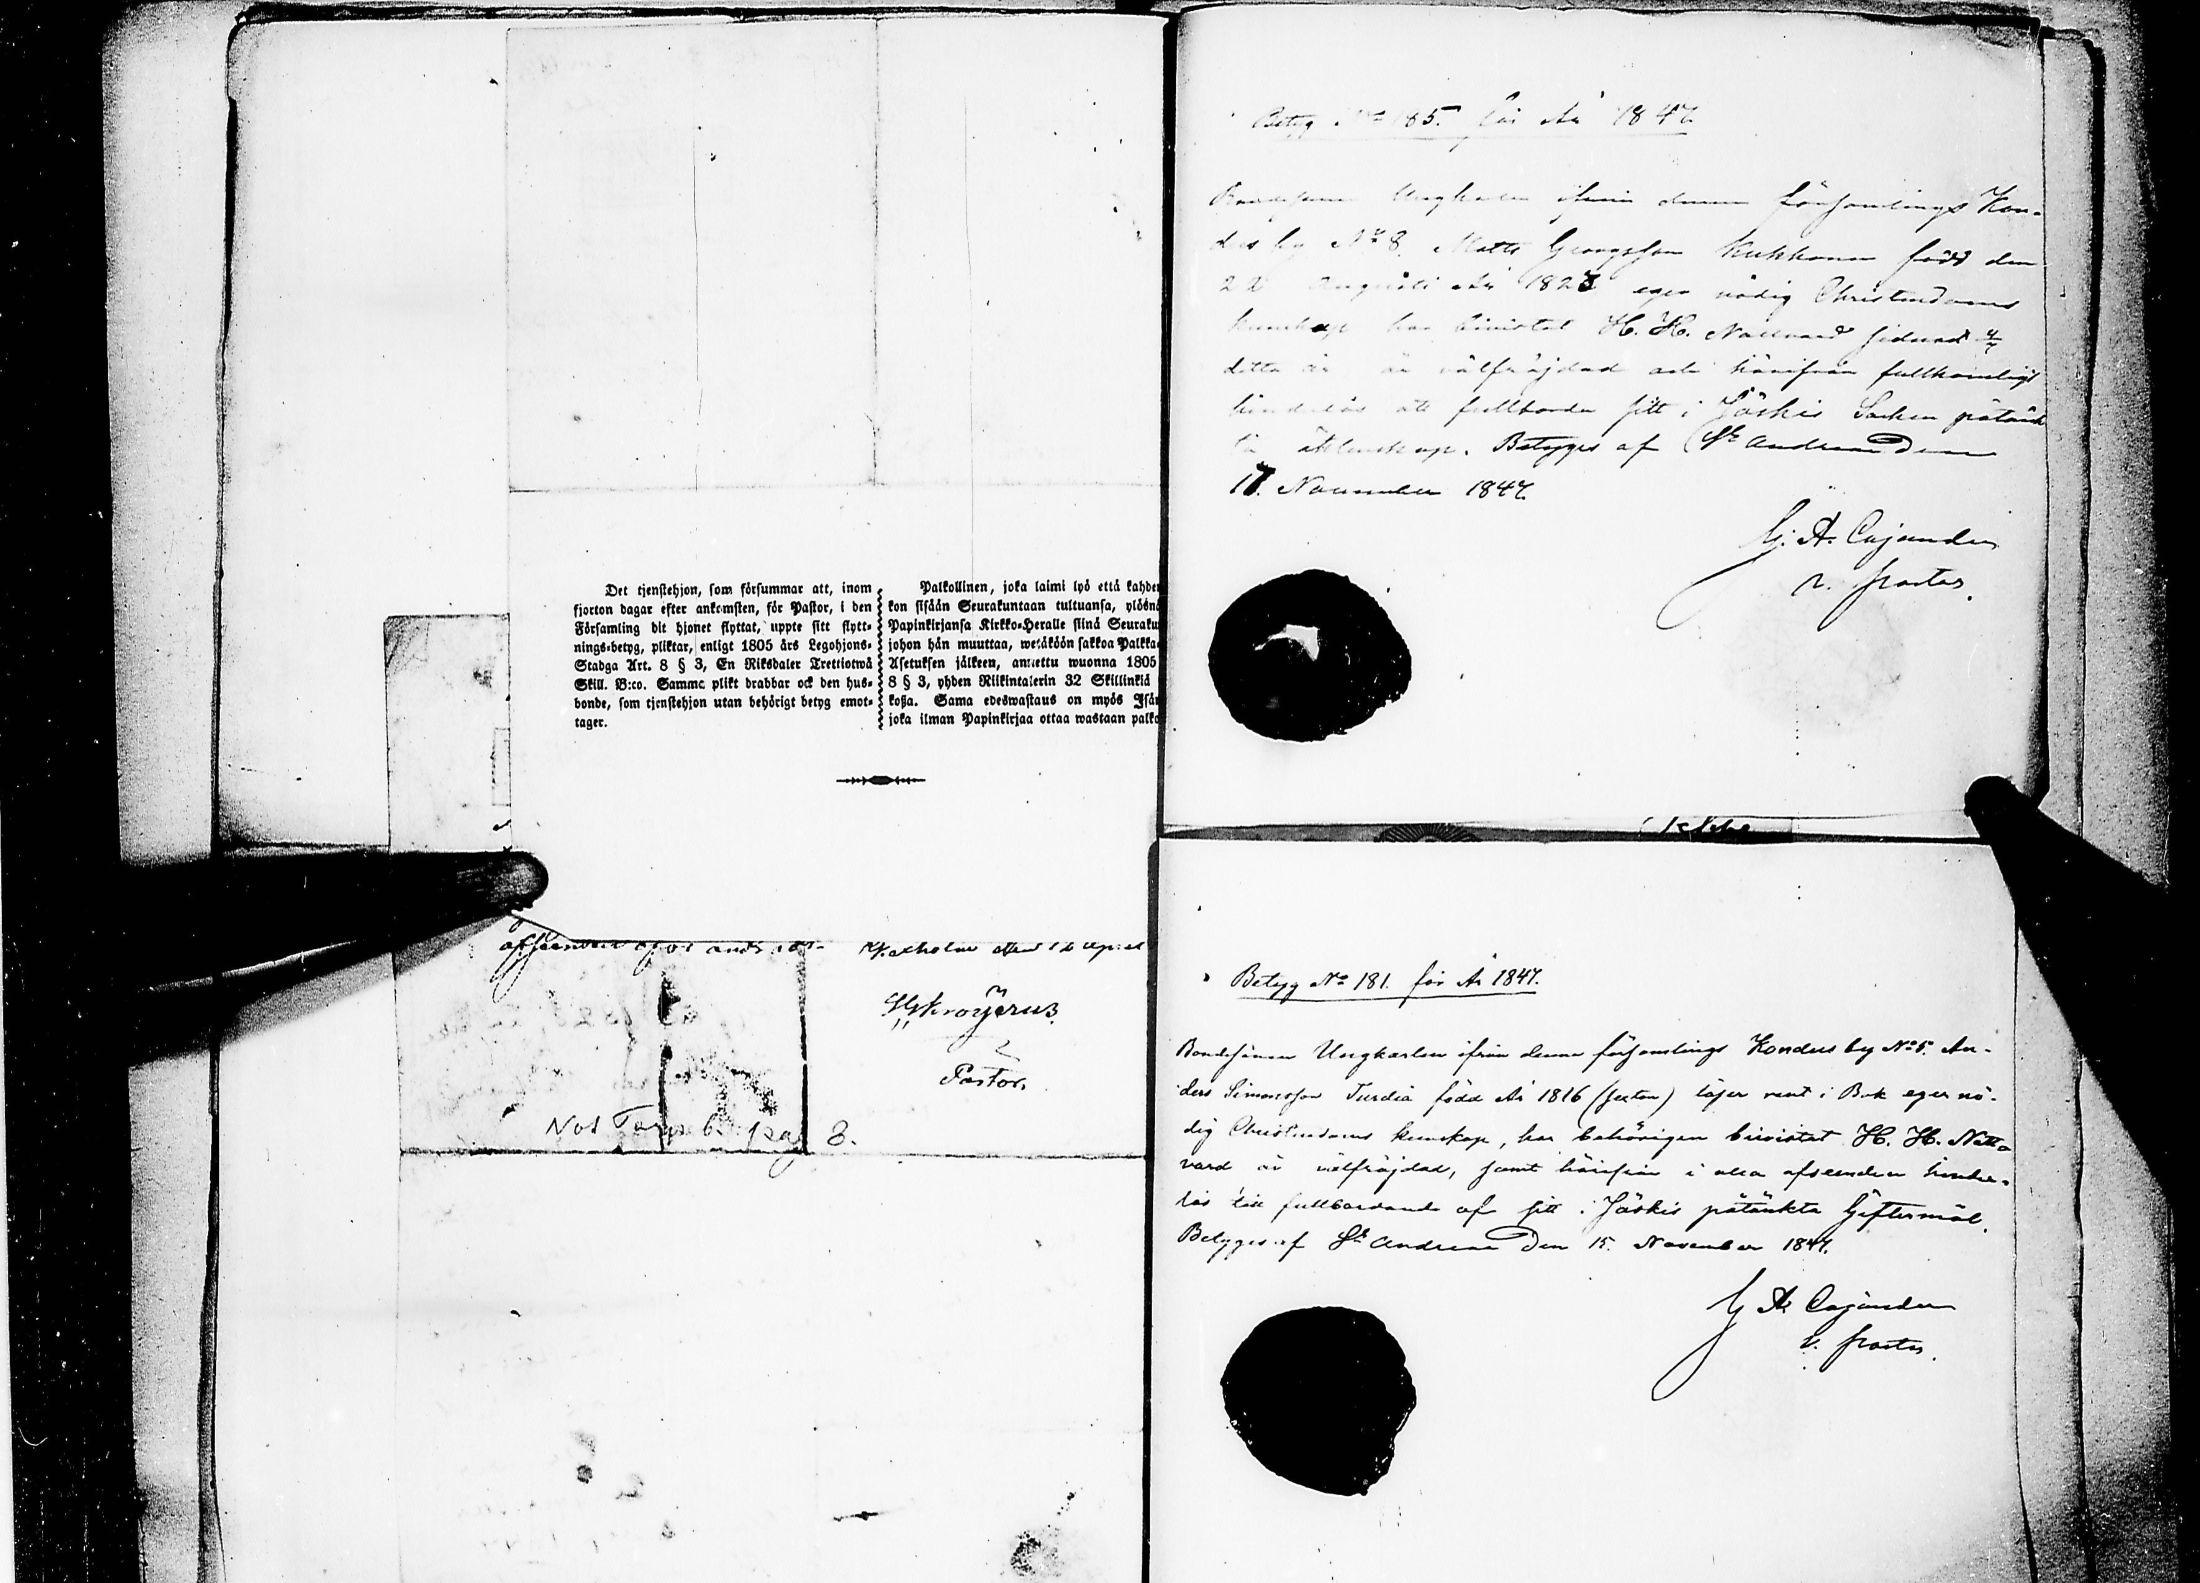 Det tjenstehjon, som försummar att, inom
fjorton dagar efter ankomsten, för Pastor, i den
Församling dit hjonet flyttat, uppte sitt flytt-
nings-betyg, pliktar, enligt 1805 års Legohjons-
Stadga Art. 8 § 3, En Riksdaler Trettiotwå
Skill. B:co. Samma plikt drabbar ock den hus-
bonde, som tjenstehjon utan behörigt betyg emot-
tager.
Palkollinen, joka laimi lyö että kahden
kon sisään Seurakuntaan tultuansa, ylösnä
Papinkirjansa Kirkko-Heralle siinä Seuraku
johon hän muuttaa, wetäköön sakkoa Palkka-
Asetuksen jälkeen, annettu wuonna 1805
8 § 3, yhden Riikintalerin 32 Skillinkiä
koßa. Sama edeswastaus on myös Isän
joka ilman Papinkirjaa ottaa wastaan palko
Pastor.
8.
Betyg No 185. för År 1847
Bondesonen Ungkarlen ifrån denna församlings Kon-
dus by No 8. Matts Georgsson Kukkonen född den
Augusti År 1823 eger nödig Christendoms
kunskap har bivistat H. H. Nattvard sednast 4/7
detta år är välfräjdad och härifrån fullkomligt
hinderlös att fullborda sitt i Jäskis Socken påtänk
ta äktenskap. Betyges af St Andreae den
17. November 1847.
G. A. Cajander
v. pastor.
Betyg No 181. för År 1847.
Bondesonen Ungkarlen ifrån denna församlings Kondus by No 5. An-
ders Simonsson Turdia född År 1816 (sexton) läser rent i Bok eger nö-
dig Christendoms kunskap, har behörigen bivistat H. H. Natt-
vard är välfräjdad, samt härifrån i alla afseenden hinder-
lös till fullbordande af sitt i Jäskis påtänkta Giftermål.
Betyges af St Andreae den 15. November 1847.
G A Cajander
v. pastor.